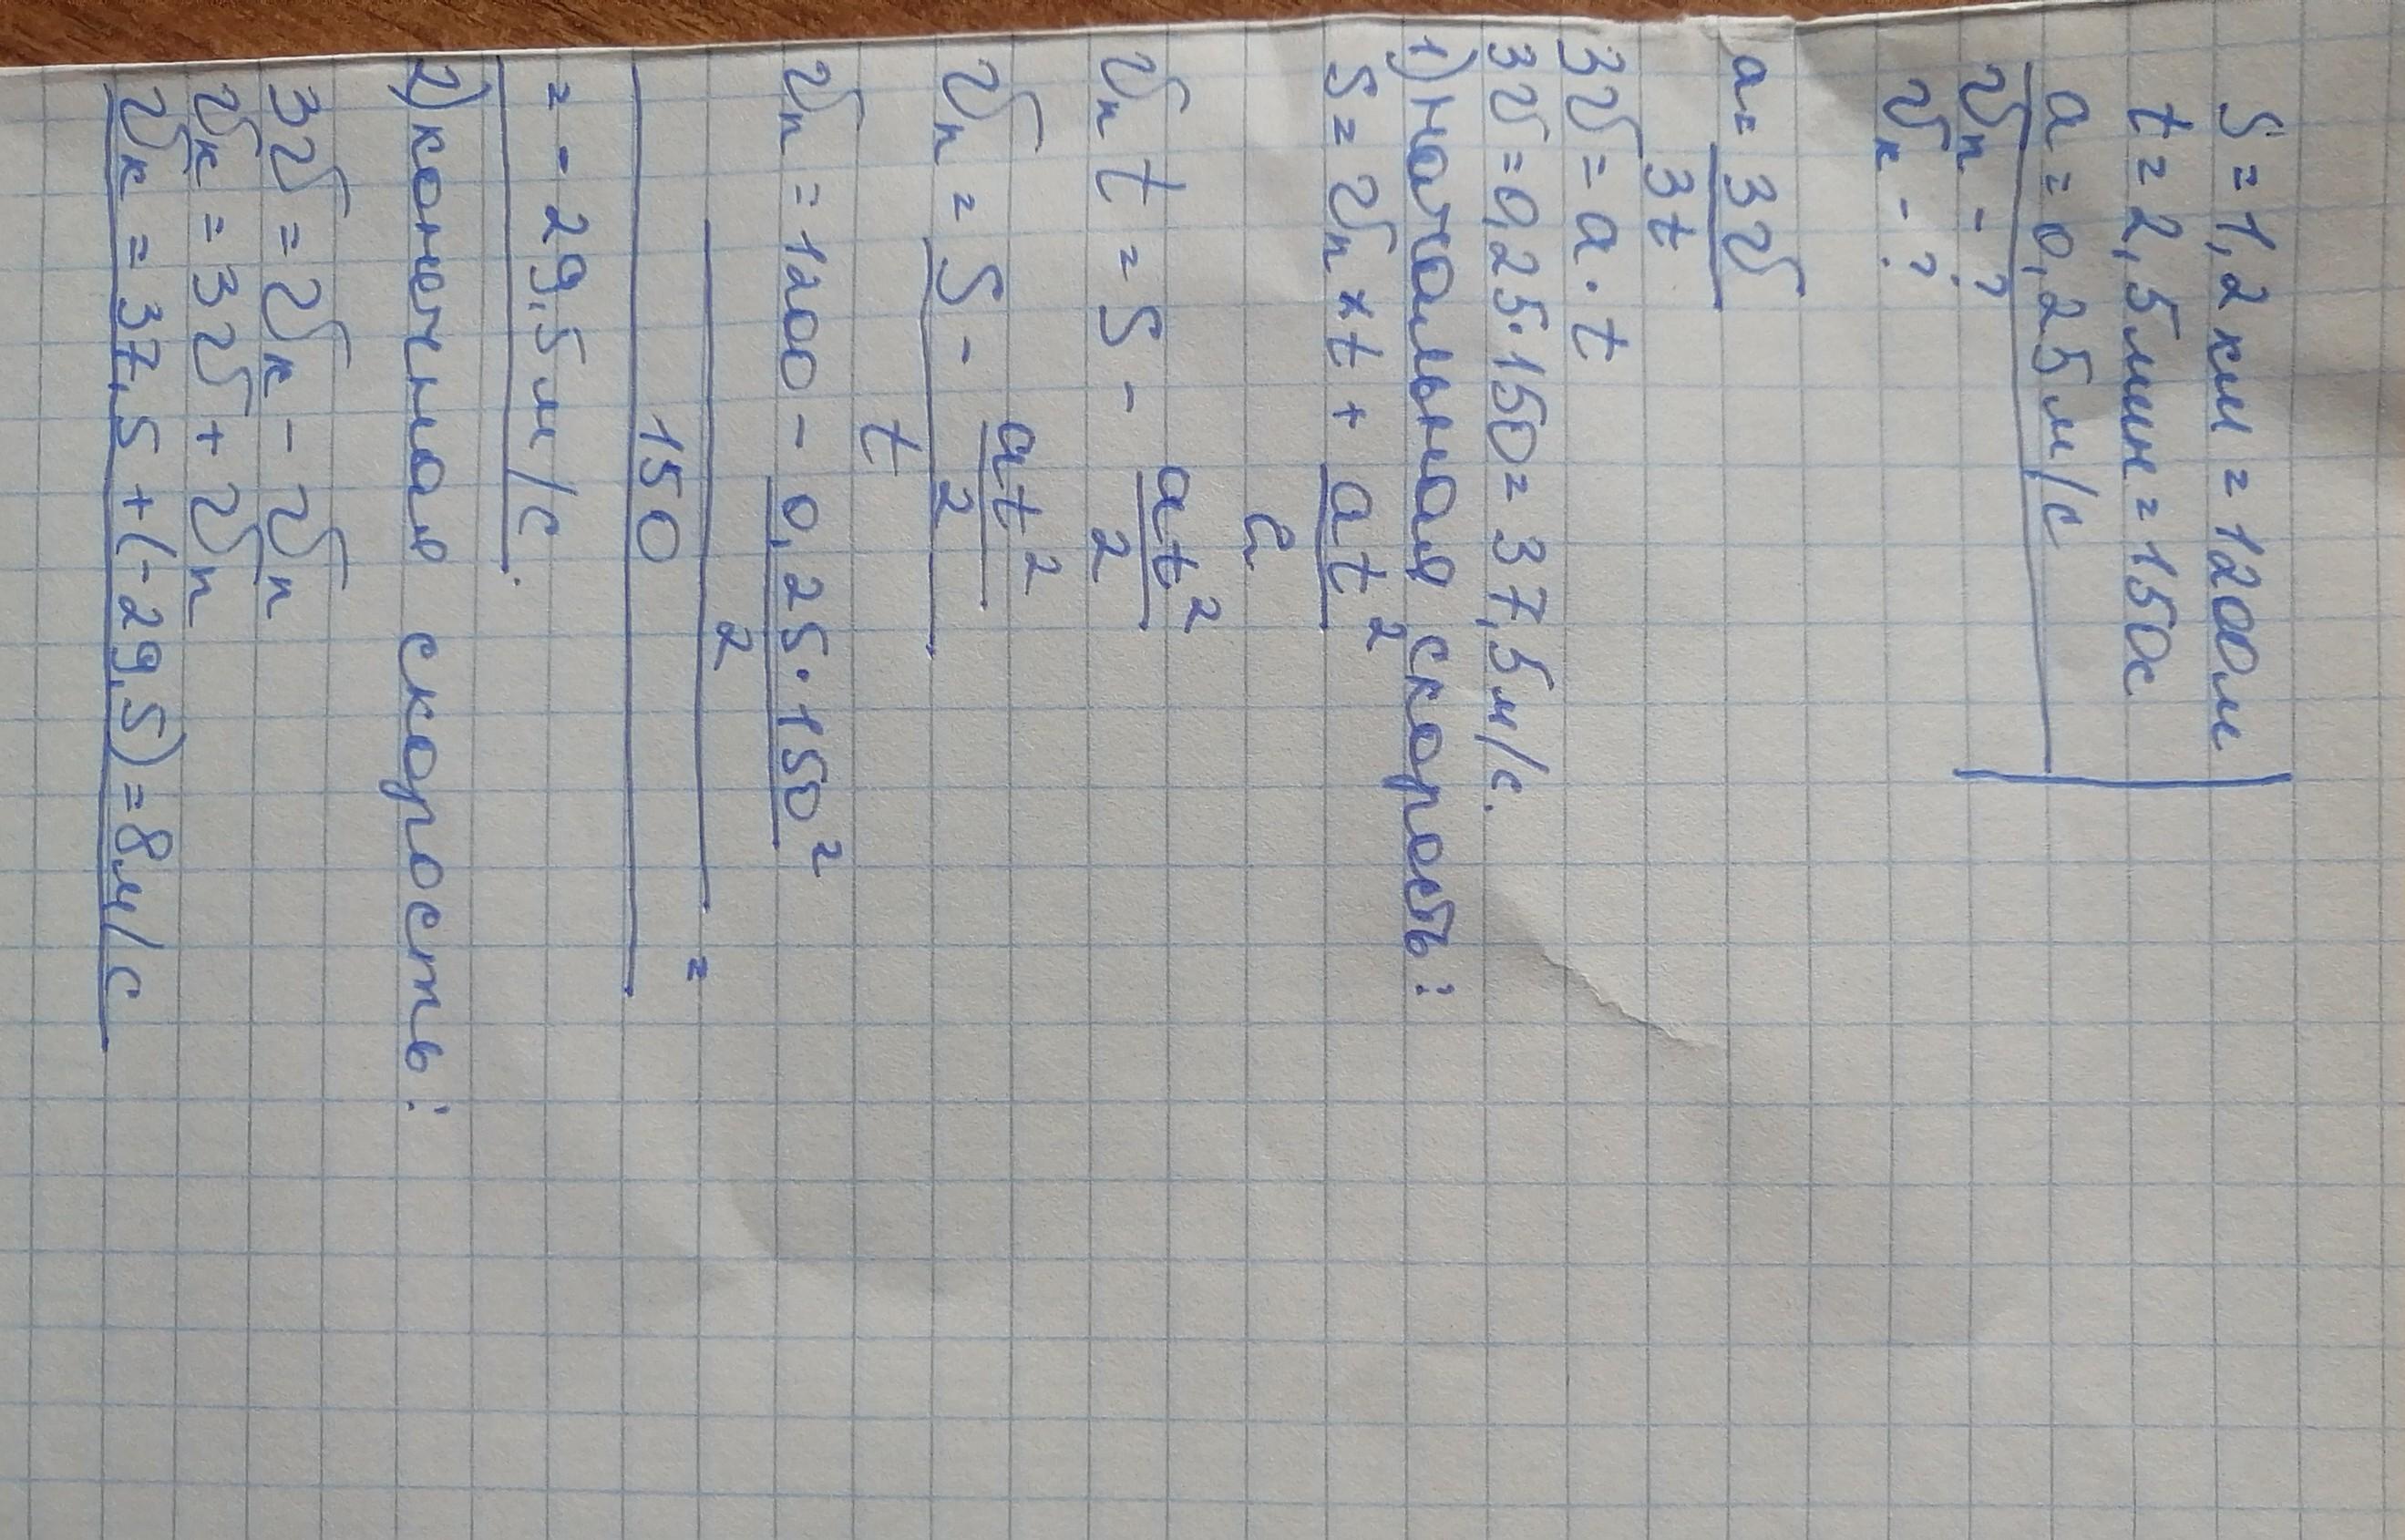 S = 1,2 км = 1200м
t = 2,5мин = 150с
a = 0,25м/с
υн - ?
υк - ?
a = 3υ
3t
3υ = a · t
3υ = 0,25 · 150 = 37,5м/с.
1) начальная скорость:
S = υн × t + at²
2
υн t = S - at²
2
υн = S - at²
2
t
υн = 1200 - 0,25 · 150²
2
=
150
= - 29,5м/с.
2) конечная скорость:
3υ = υк - υн
υк = 3υ + υн
υк = 37,5 + (-29,5) = 8м/с